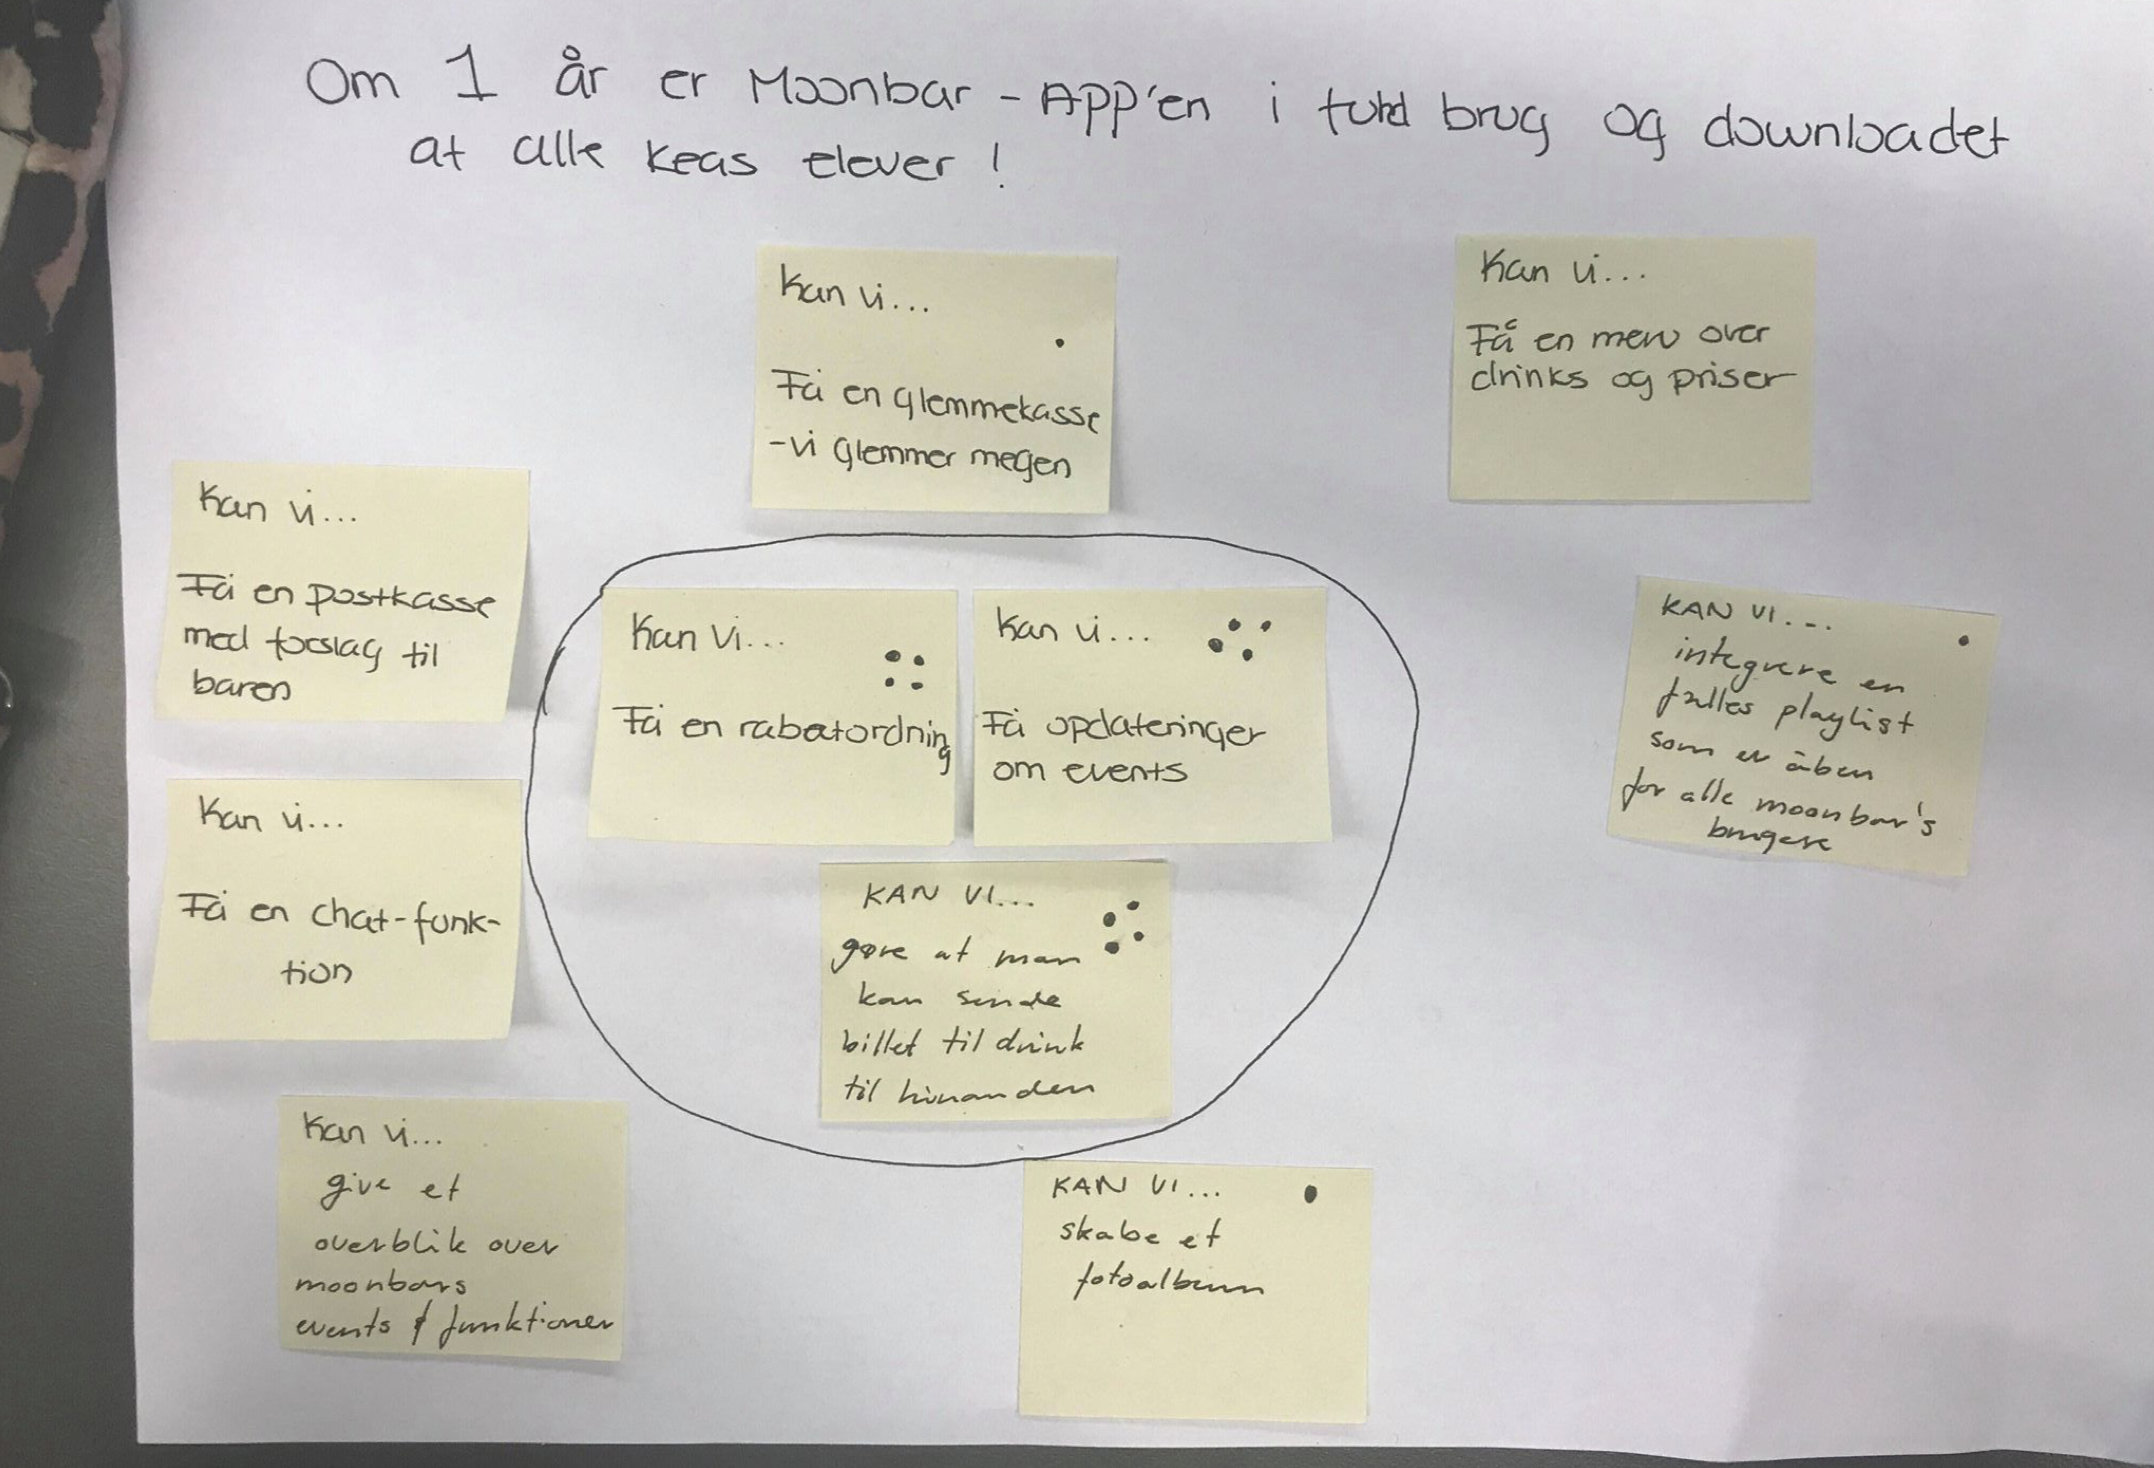 Om 1 år er Moonbar - App'en i fuld brug og downloadet
af alle Keas elever !
Kan vi...
Få en glemmekasse
- vi glemmer megen
Kan vi...
Få en menu over
drinks og priser
Kan vi...
Få en postkasse
med forslag til
baren
Kan vi...
Få en rabatordning
Kan vi...
Få opdateringer
om events
KAN VI...
integrere en
fælles playlist
som er åben
for alle moonbar's
brugere
Kan vi...
Få en chat-funk-
tion
KAN VI...
gøre at man
kan sende
billet til drink
til hinanden
Kan vi...
give et
overblik over
moonbars
events & funktioner
KAN VI...
skabe et
fotoalbum